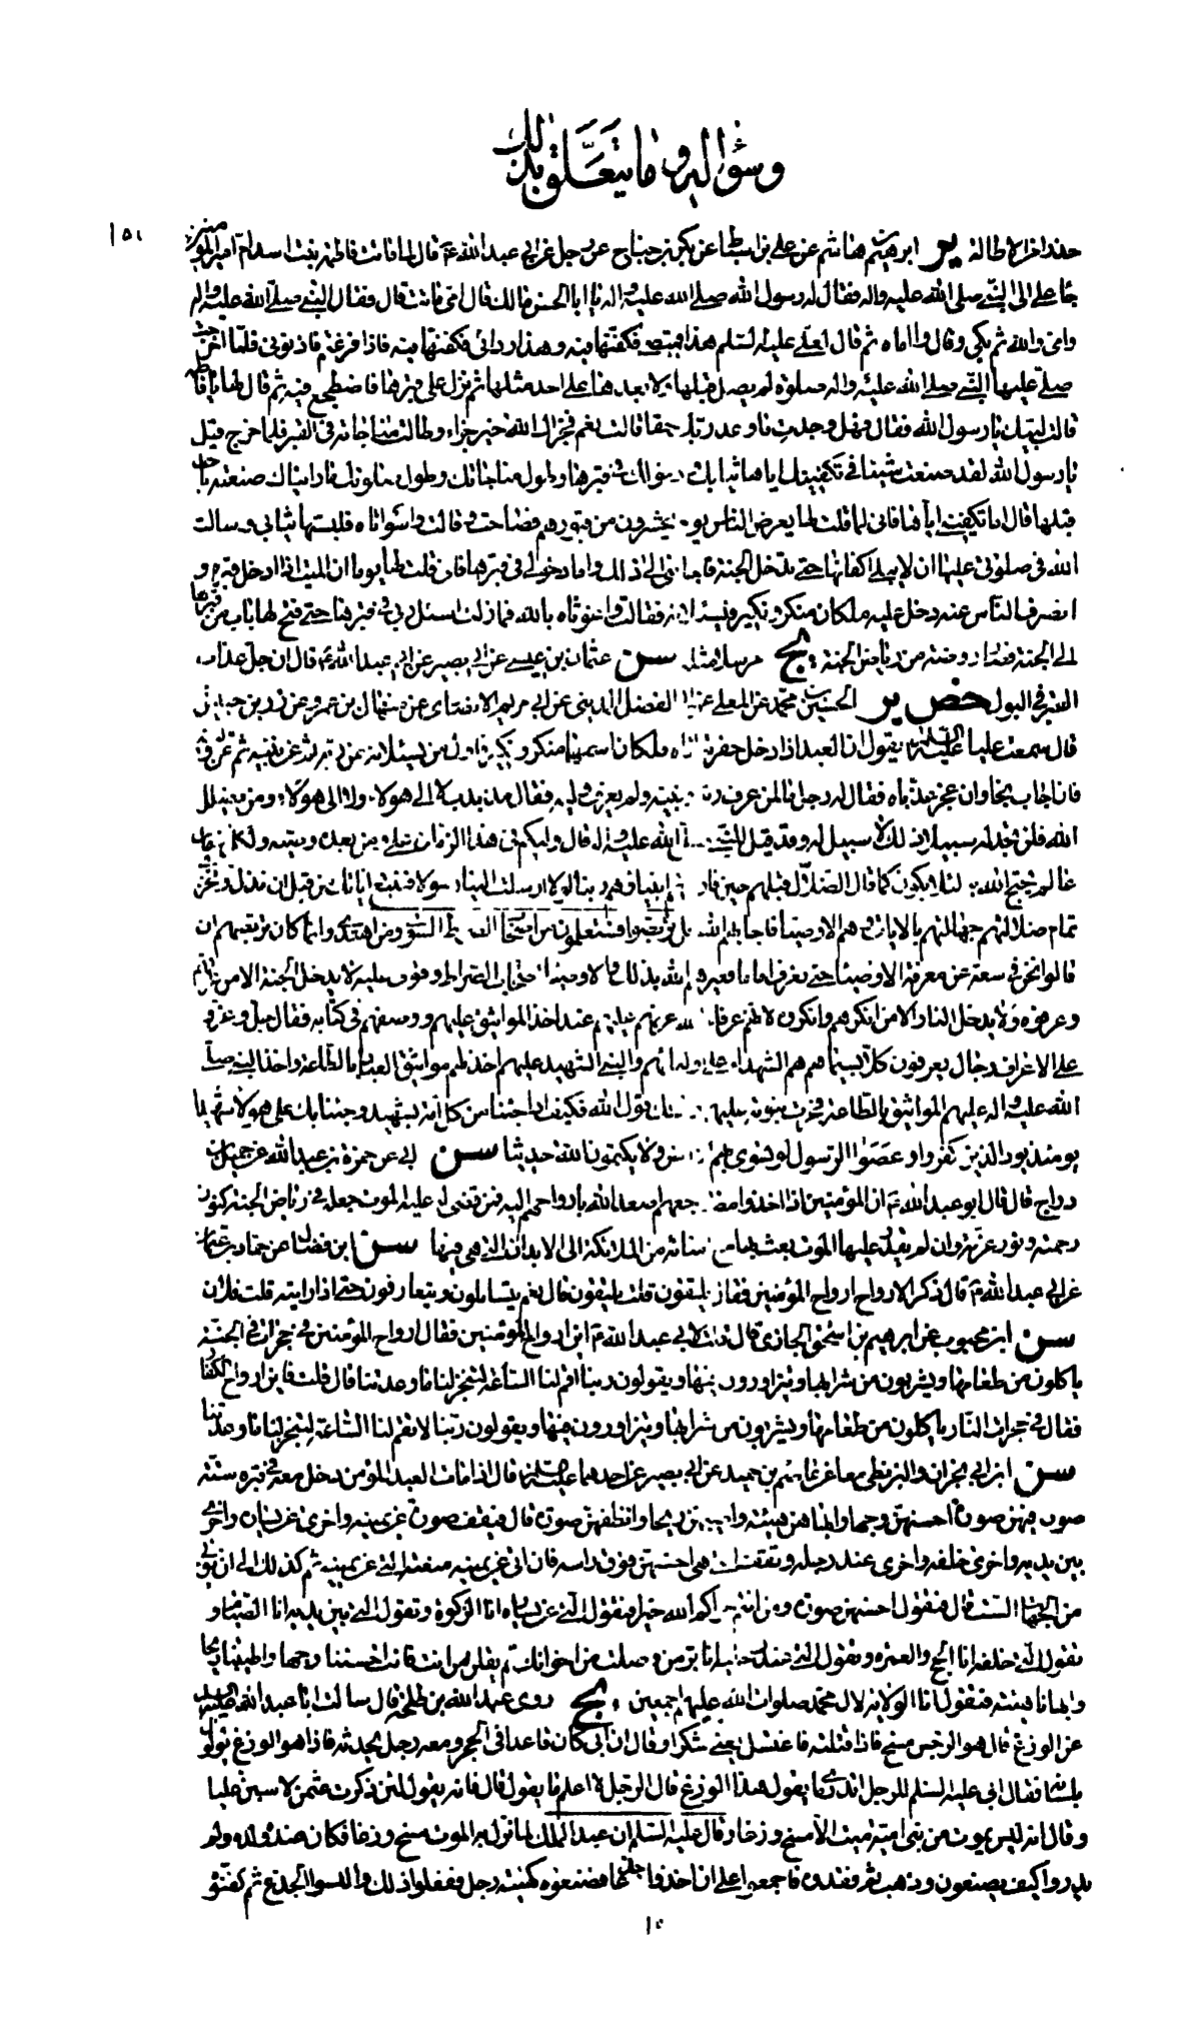 وسؤاله وما يتعلق بذلك
١٥١
حذرا من الاطالة ير ابرهيم بن هاشم عن علي بن اسباط عن بكر بن جناح عن رجل عن ابي عبد الله ع قال لما ماتت فاطمة بنت اسد ام امير المؤمنين
جاء علي الى النبي صلى الله عليه واله فقال له رسول الله صلى الله عليه واله يا ابا الحسن مالك قال امي ماتت قال فقال النبي صلى الله عليه واله
وامي والله ثم بكى وقال وا اماه ثم قال لعلي عليه السلم هذا قميصي فكفنها فيه وهذا ردائي فكفنها فيه فاذا فرغتم فاذنوني فلما اخرجت
صلى عليها النبي صلى الله عليه واله صلوة لم يصل قبلها ولا بعدها على احد مثلها ثم نزل على قبرها فاضطجع فيه ثم قال لها يا فاطمة
قالت لبيك يا رسول الله فقال فهل وجدت ما وعد ربك حقا قالت نعم فجزاك الله خير جزاء وطالت مناجاته في القبر فلما خرج قيل
يا رسول الله لقد صنعت بها شيئا في تكفينك اياها ثيابك ودخولك في قبرها وطول مناجاتك وطول صلوتك ما رايناك صنعته باحد
قبلها قال اما تكفيني اياها فاني لما قلت لها يعرض الناس يوم يحشرون من قبورهم فصاحت وقالت واسوأتاه فلبستها ثيابي وسالت
الله في صلوتي عليها ان لا يبلي اكفانها حتى تدخل الجنة فاجابني الى ذلك واما دخولي في قبرها فاني قلت لها يوما ان الميت اذا ادخل قبره و
انصرف الناس عنه دخل عليه ملكان منكر ونكير فيسئلانه فقالت واغوثاه بالله فما زلت اسئل ربي في قبرها حتى فتح لها باب من قبرها
الى الجنة فصار روضة من رياض الجنة يج مرسلا مثله سن عثمان بن عيسى عن ابي بصير عن ابي عبد الله ع قال ان جل عذاب
القبر في البول خص ير الحسين بن محمد عن المعلى عن ابي الفضل المديني عن ابي مريم الانصاري عن منهال بن عمرو عن زر بن حبيش
قال سمعت عليا عليه السلم يقول ان العبد اذا ادخل حفرته اتاه ملكان اسمهما منكر ونكير فاول من يسئلانه عن ربه ثم عن نبيه ثم عن وليه
فان اجاب نجا وان عجز عذباه فقال له رجل ما لمن عرف ربه ونبيه ولم يعرف وليه فقال مذبذب لا الى هؤلاء ولا الى هؤلاء ومن يضلل
الله فلن تجد له سبيلا ذلك لا سبيل له وقد قيل للنبي صلى الله عليه واله قال وليكم في هذا الزمان علي ومن بعده وصيه ولكل زمان
عالم يحتج الله به لئلا يكون كما قال الضلال قبلهم حين فارقتهم انبياؤهم ربنا لولا ارسلت الينا رسولا فنتبع اياتك من قبل ان نذل ونخزى
تمام ضلالتهم جهالتهم بالايات وهم الاوصياء فاجابهم الله قل تربصوا فستعلمون من اصحاب الصراط السوي ومن اهتدى وانما كان تربصهم ان
قالوا نحن في سعة عن معرفة الاوصياء حتى نعرف اماما فعيرهم الله بذلك فالاوصياء اصحاب الصراط وقوف عليه لا يدخل الجنة الا من عرفهم
وعرفوه ولا يدخل النار الا من انكرهم وانكروه لانهم عرفاء الله عرفهم عليهم عند اخذ المواثيق عليهم ووصفهم في كتابه فقال جل وعز و
على الاعراف رجال يعرفون كلا بسيماهم هم الشهداء على اوليائهم والنبي الشهيد عليهم اخذ لهم مواثيق العباد بالطاعة واخذ النبي صلى
الله عليه واله عليهم المواثيق بالطاعة فجرت نبوته عليهم وذلك قول الله فكيف اذا جئنا من كل امة بشهيد وجئنا بك على هؤلاء شهيدا
يومئذ يود الذين كفروا وعصوا الرسول لو تسوى بهم الارض ولا يكتمون الله حديثا سن ابي عن حمزة بن عبد الله عن جميل بن
دراج قال قال ابو عبد الله ع ان المؤمنين اذا اخذوا مضاجعهم اصعد الله بارواحهم اليه فمن قضى له عليه الموت جعله في رياض الجنة كنوز
رحمته ونور عزته وان لم يقدر عليها الموت بعث بها مع امنائه من الملائكة الى الابدان التي هي فيها سن ابن فضال عن حماد بن عثمان
عن ابي عبد الله ع قال ذكر الارواح ارواح المؤمنين فقال يلتقون قلت يلتقون قال نعم يتساءلون ويتعارفون حتى اذا رايته قلت فلان
سن ابن محبوب عن ابرهيم بن اسحق الجازي قال قلت لابي عبد الله ع اين ارواح المؤمنين فقال ارواح المؤمنين في حجرات في الجنة
ياكلون من طعامها ويشربون من شرابها ويتزاورون فيها ويقولون ربنا اقم لنا الساعة لتنجز لنا ما وعدتنا قال قلت فاين ارواح الكفار
فقال في حجرات النار ياكلون من طعامها ويشربون من شرابها ويتزاورون فيها ويقولون ربنا لا تقم لنا الساعة لتنجز لنا ما وعدتنا
سن ابن ابي نجران والبزنطي معا عن عاصم بن حميد عن ابي بصير عن احدهما عليهما السلم قال اذا مات العبد المؤمن دخل معه في قبره ستة
صور فيهن صورة احسنهن وجها وابهاهن هيئة واطيبهن ريحا وانظفهن صورة قال فيقف صورة عن يمينه واخرى عن يساره واخرى
بين يديه واخرى خلفه واخرى عند رجله وتقف التي هي احسنهن فوق راسه فان اتي عن يمينه منعته التي عن يمينه ثم كذلك الى ان يؤتى
من الجهات الست قال فتقول احسنهن صورة ومن انتم جزاكم الله خيرا فتقول التي عن يمينه انا الزكوة وتقول التي بين يديه انا الصيام و
تقول التي خلفه انا الحج والعمرة وتقول التي عند رجليه انا بر من وصلت من اخوانك ثم يقلن من انت فانت احسننا وجها واطيبنا ريحا
وابهانا هيئة فتقول انا الولاية لال محمد صلوات الله عليهم اجمعين يج روى عبد الله بن طلحة قال سالت ابا عبد الله عليه السلم
عن الوزغ قال هو الرجس مسخ فاذا قتلته فاغتسل يعني شكرا وقال ان ابي كان قاعدا في الحجر ومعه رجل يحدثه فاذا هو الوزغ يولول
بلسانه فقال ابي عليه السلم للرجل اتدري ما يقول هذا الوزغ قال الرجل لا اعلم ما يقول قال فانه يقول لئن ذكرت عثمن لاسبن عليا
وقال انه ليس يموت من بني امية ميت الا مسخ وزغا وقال عليه السلم ان عبد الملك لما نزل به الموت مسخ وزغا فكان عنده ولده ولم
يدروا كيف يصنعون وذهب ثم فقدوه فاجمعوا على ان اخذوا جذعا فصنعوه كهيئة رجل ففعلوا ذلك والبسوا الجذع ثم كفنوه